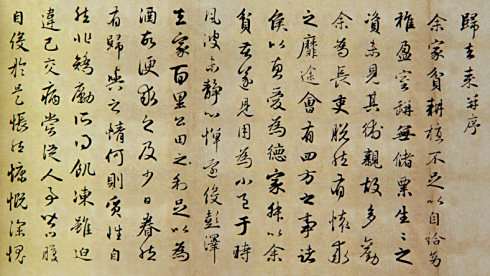 歸去來并序
余家貧耕植不足以自給幼
稚盈室缾無儲粟生生之
資未見其術親故多勸
余為長吏脫然有懷求
之靡途會有四方之事諸
侯以惠愛為德家叔以余
貧苦遂見用為小邑于時
風波未靜心憚遠役彭澤
去家百里公田之利足以為
酒故便求之及少日眷然
有歸與之情何則質性自
然非矯勵所得飢凍雖迫
違己交病嘗從人事皆口腹
自役於是悵然慷慨深愧